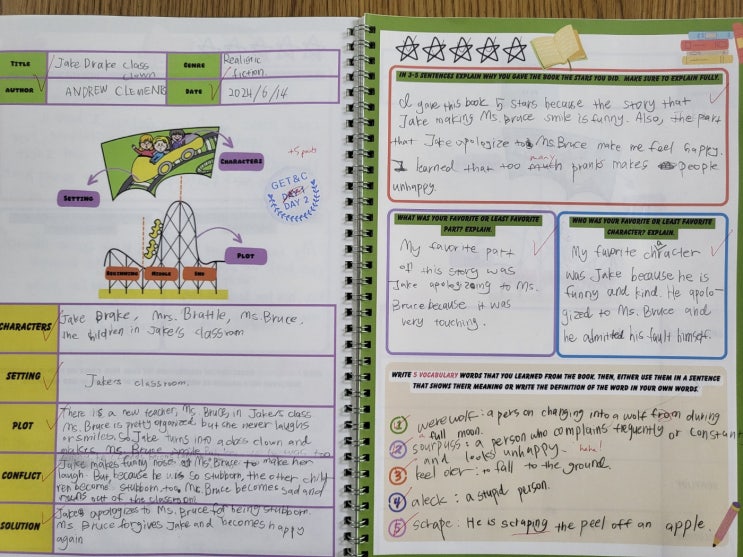 TITLE
Jake Drake class
clown
GENRE
Realistic
fiction.
AUTHOR
ANDREW CLEMENTS
DATE
2024/6/14
CHARACTERS
SETTING
+5 points
GET&C
DAY 2
PLOT
BEGINNING
MIDDLE
END
CHARACTERS
Jake Drake, Mrs. Brattle, Ms. Bruce.
The children in Jake's classroom
SETTING
Jake's classroom.
PLOT
There is a new teacher, Ms. Bruce in Jake's class
Ms. Bruce is pretty organized but she never laughs
or smiles. So Jake turns into a class clown and
makes Ms. Bruce smile
CONFLICT
Jake makes funny noise at Ms. Bruce to make her
laugh. But, because he is so stubborn, the other child
ren become stubborn too. Ms. Bruce becomes sad and
runs out of the classroom.
SOLUTION
Jake apologizes to Ms. Bruce for being stubborn.
Ms. Bruce forgives Jake and becomes happy
again
IN 3-5 SENTENCES EXPLAIN WHY YOU GAVE THE BOOK THE STARS YOU DID. MAKE SURE TO EXPLAIN FULLY.
I gave this book 5 stars because the story that
Jake making Ms. Bruce smile is funny. Also, the part
that Jake apologize to Ms. Bruce make me feel happy.
I learned that too many pranks makes people
unhappy.
WHAT WAS YOUR FAVORITE OR LEAST FAVORITE
PART? EXPLAIN.
My favorite part
of this story was
Jake apologizing to Ms.
Bruce because it was
very touching.
WHO WAS YOUR FAVORITE OR LEAST FAVORITE
CHARACTER? EXPLAIN.
My favorite character
was Jake because he is
funny and kind. He apolo-
gized to Ms. Bruce and
he admitted his fault himself.
WRITE 5 VOCABULARY WORDS THAT YOU LEARNED FROM THE BOOK. THEN, EITHER USE THEM IN A SENTENCE
THAT SHOWS THEIR MEANING OR WRITE THE DEFINITION OF THE WORD IN YOUR OWN WORDS.
1 werewolf : a person changing into a wolf from during
a full moon.
2 sourpuss : a person who complains frequently or constant
and looks unhappy. haha!
3 keel over : to fall to the ground.
4 aleck : a stupid person.
5 scrape : He is scraping the peel off an apple.